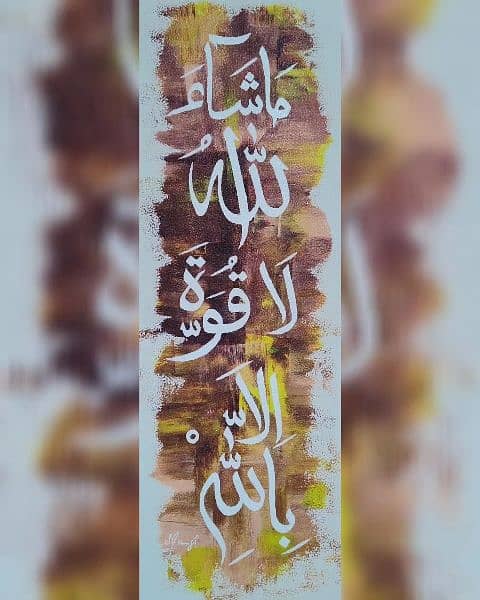 مَاشَآءَ
اللّٰهُ
لَا قُوَّةَ
اِلَّا
بِاللّٰهِ